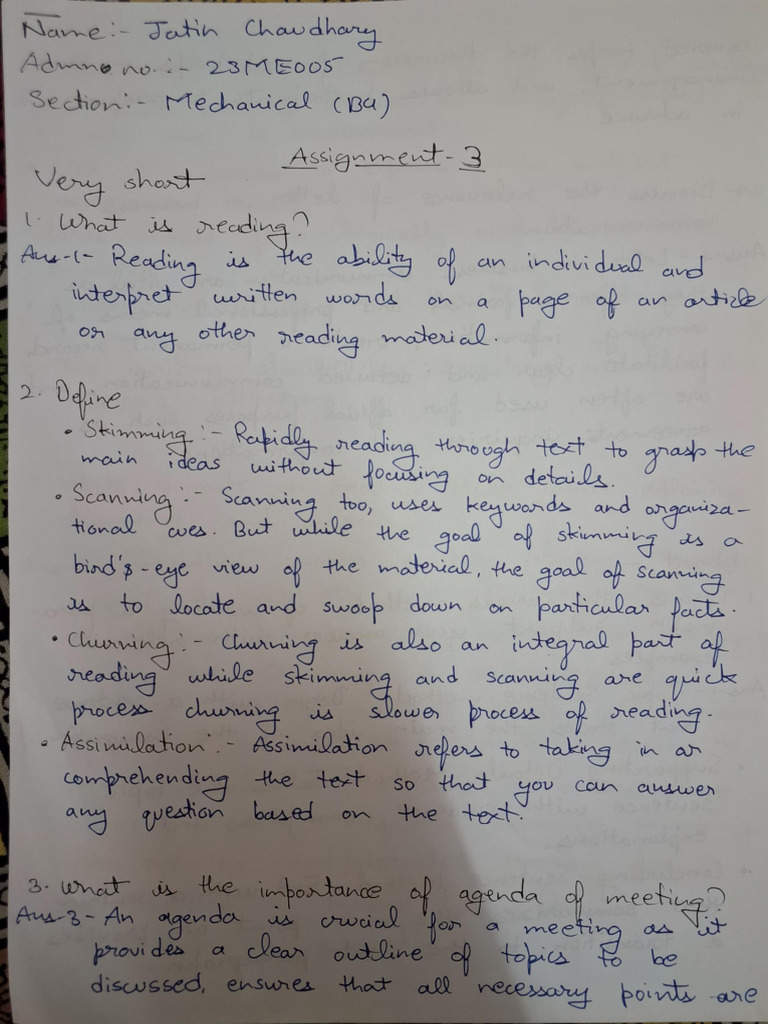 Name:- Jatin Chaudhary
Admno no.:- 23ME005
Section:- Mechanical (B4)
Assignment-3
Very short
1. What is reading?
Ans-1- Reading is the ability of an individual and
interpret written words on a page of an article
or any other reading material.
2. Define
• Skimming:- Rapidly reading through text to grasp the
main ideas without focusing on details.
• Scanning:- Scanning too, uses keywords and organiza-
tional cues. But while the goal of skimming is a
bird's-eye view of the material, the goal of scanning
is to locate and swoop down on particular facts.
• Churning:- Churning is also an integral part of
reading while skimming and scanning are quick
process churning is slower process of reading.
• Assimilation:- Assimilation refers to taking in or
comprehending the text so that you can answer
any question based on the text.
3. What is the importance of agenda of meeting?
Ans-3- An agenda is crucial for a meeting as it
provides a clear outline of topics to be
discussed, ensures that all necessary points are